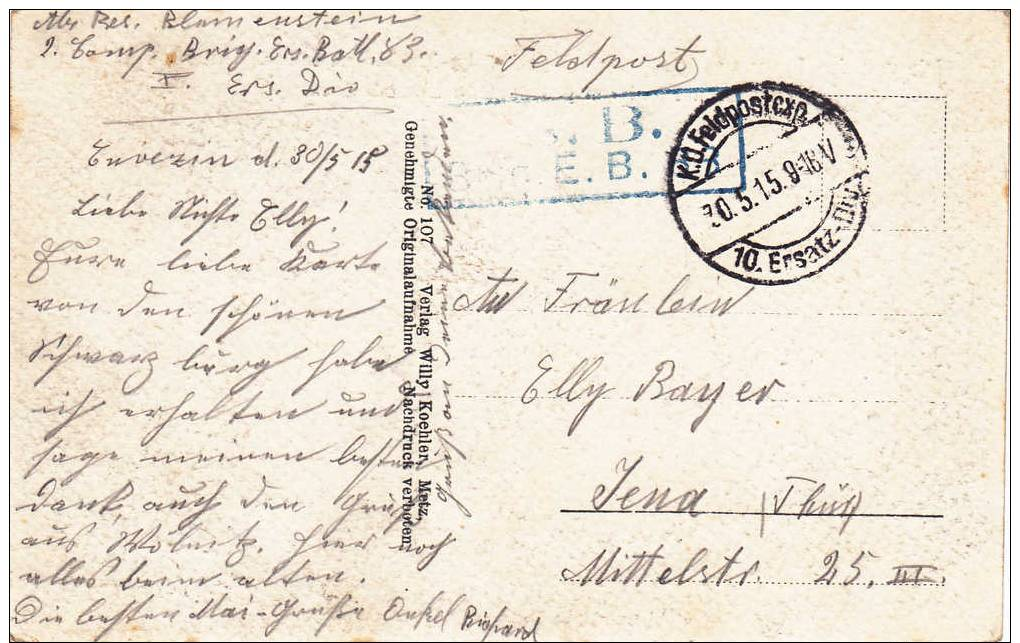 Res. Blumenstein
2. Comp. Brig. Ers. Batl. 83.
X. Ers. Div
Feldpost
B.
E. B.
K.D. Feldpostexp.
30.5.15. 9-10 V
10. Ersatz-Div.
d. 30/5 15
Liebe Nichte Elly!
Eure liebe Karte
von den schönen
Schwarzburg habe
ich erhalten und
sage meinen besten
Dank, auch den Gruß
aus Wölnitz. Hier noch
alles beim alten.
Die besten Mai-Grüße Onkel Richard
Gruß an
No. 107 Verlag Willy Koehler, Metz.
Genehmigte Originalaufnahme Nachdruck verboten
An Fräulein
Elly Bayer
Jena (Thür)
Mittelstr. 25. III.